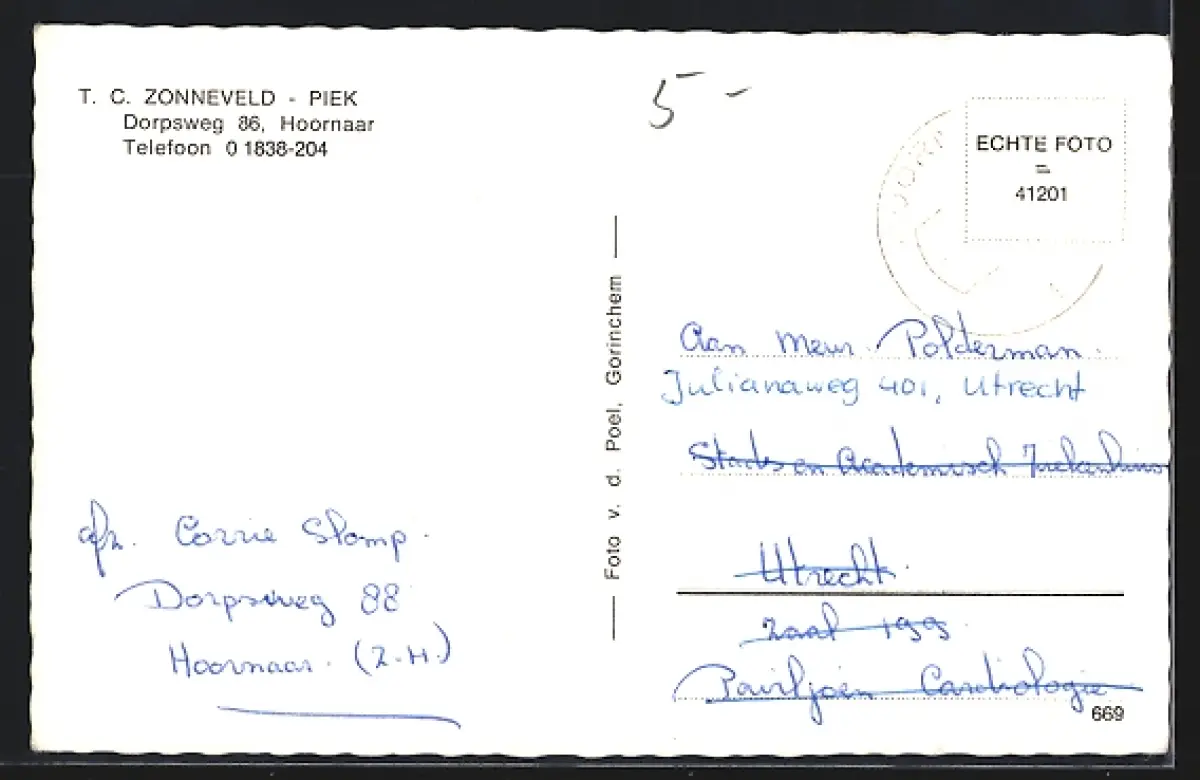 T. C. ZONNEVELD - PIEK
Dorpsweg 86, Hoornaar
Telefoon 0 1838-204
5-
-
ECHTE FOTO
=
41201
Foto v. d. Poel, Gorinchem
Aan Meur. Polderman.
Julianaweg 401, Utrecht
Stads en Academisch Ziekenhuis
Utrecht.
zaal 199.
Paviljoen Cardiologie
669
afz. Corrie Stomp.
Dorpsweg 88
Hoornaar. (Z.H.)